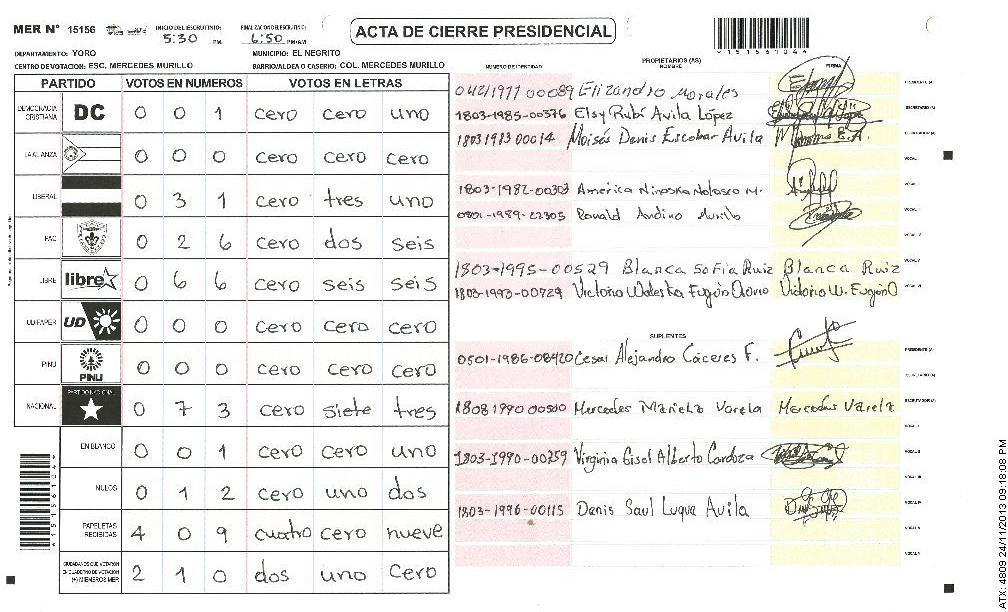 MER N° 15156 INICIO DEL ESCRUTINIO: 5:30 PM FINALIZACION ESCRUTINIO: 6:50 PM/AM ACTA DE CIERRE PRESIDENCIAL
DEPARTAMENTO: YORO MUNICIPIO: EL NEGRITO
CENTRO DE VOTACION: ESC. MERCEDES MURILLO BARRIO/ALDEA O CASERIO: COL. MERCEDES MURILLO
PARTIDO VOTOS EN NUMEROS VOTOS EN LETRAS
DEMOCRACIA CRISTIANA DC 0 0 1 cero cero uno
LA ALIANZA 0 0 0 cero cero cero
LIBERAL 0 3 1 cero tres uno
PAC 0 2 6 cero dos seis
LIBRE libre 0 6 6 cero seis seis
UD FAPER UD 0 0 0 cero cero cero
PINU PINU 0 0 0 cero cero cero
NACIONAL PARTIDO NACIONAL 0 7 3 cero siete tres
EN BLANCO 0 0 1 cero cero uno
NULOS 0 1 2 cero uno dos
PAPELETAS RECIBIDAS 4 0 9 cuatro cero nueve
CIUDADANOS QUE VOTARON EN CUADERNO DE VOTACION (+) MIEMBROS MER 2 1 0 dos uno cero
NUMERO DE IDENTIDAD PROPIETARIOS (AS) NOMBRE FIRMA
Elizandro Morales PRESIDENTE (A)
1803-1985-00376 Elsy Rubí Avila López SECRETARIO (A)
1803 1983 00014 Moisés Denis Escobar Avila ESCRUTADOR (A)
VOCAL I
1803-1982-00303 America Ninoska Nolasco M.
0801-1989-22305 Ronald Andino Murillo
1803-1995-00529 Blanca Sofia Ruiz Blanca Ruiz VOCAL V
1803-1993-00729 VOCAL VI
SUPLENTES
0501-1986-08420 Cesar Alejandro Cáceres F. PRESIDENTE (A)
SECRETARIO (A)
1808 1990 00500 Mercedes Mariela Varela Mercedes Varela ESCRUTADOR (A)
VOCAL I
1803-1990-00759 Virginia Gisel Alberto Cardoza VOCAL II
VOCAL III
1803-1996-00115 Denis Saul Luque Avila VOCAL IV
VOCAL V
VOCAL VI
ATX: 4809 24/11/2013 09:18:08 PM